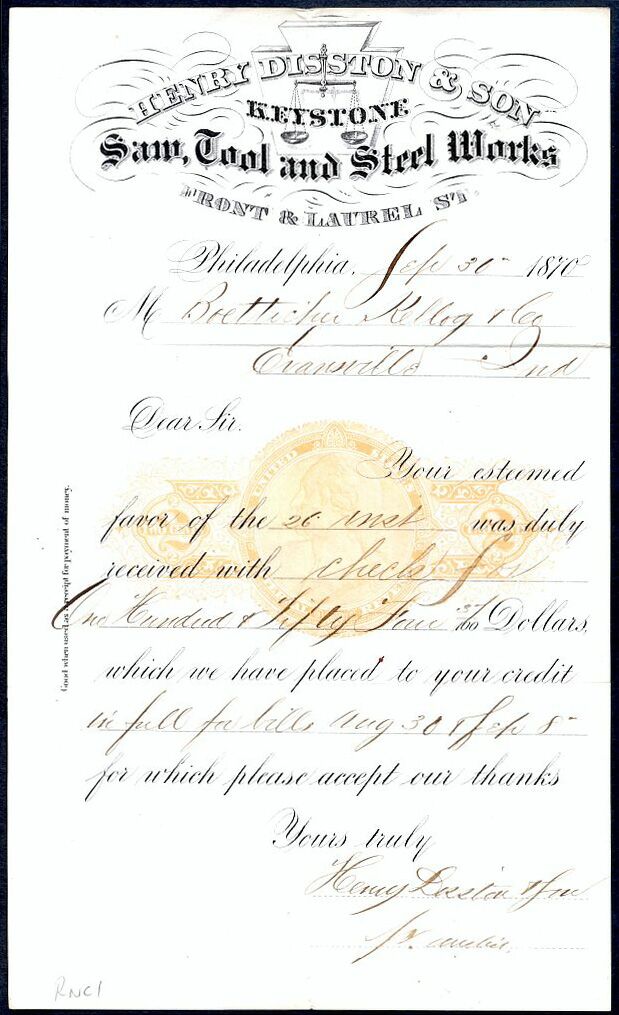 HENRY DISSTON & SON
KEYSTONE
Saw, Tool and Steel Works
FRONT & LAUREL ST.
Philadelphia, Sep 30 1870
M Boetticher Kellog & Co
Evansville Ind
Dear Sir.
Your esteemed
favor of the 26 inst was duly
received with check for
One Hundred & Fifty Four /100 Dollars,
which we have placed to your credit
in full for bills Aug 30 & Sep 8
for which please accept our thanks
Yours truly
Henry Disston & Son
Good when used as a receipt for payment of money.
UNITED
2
2
RNC1